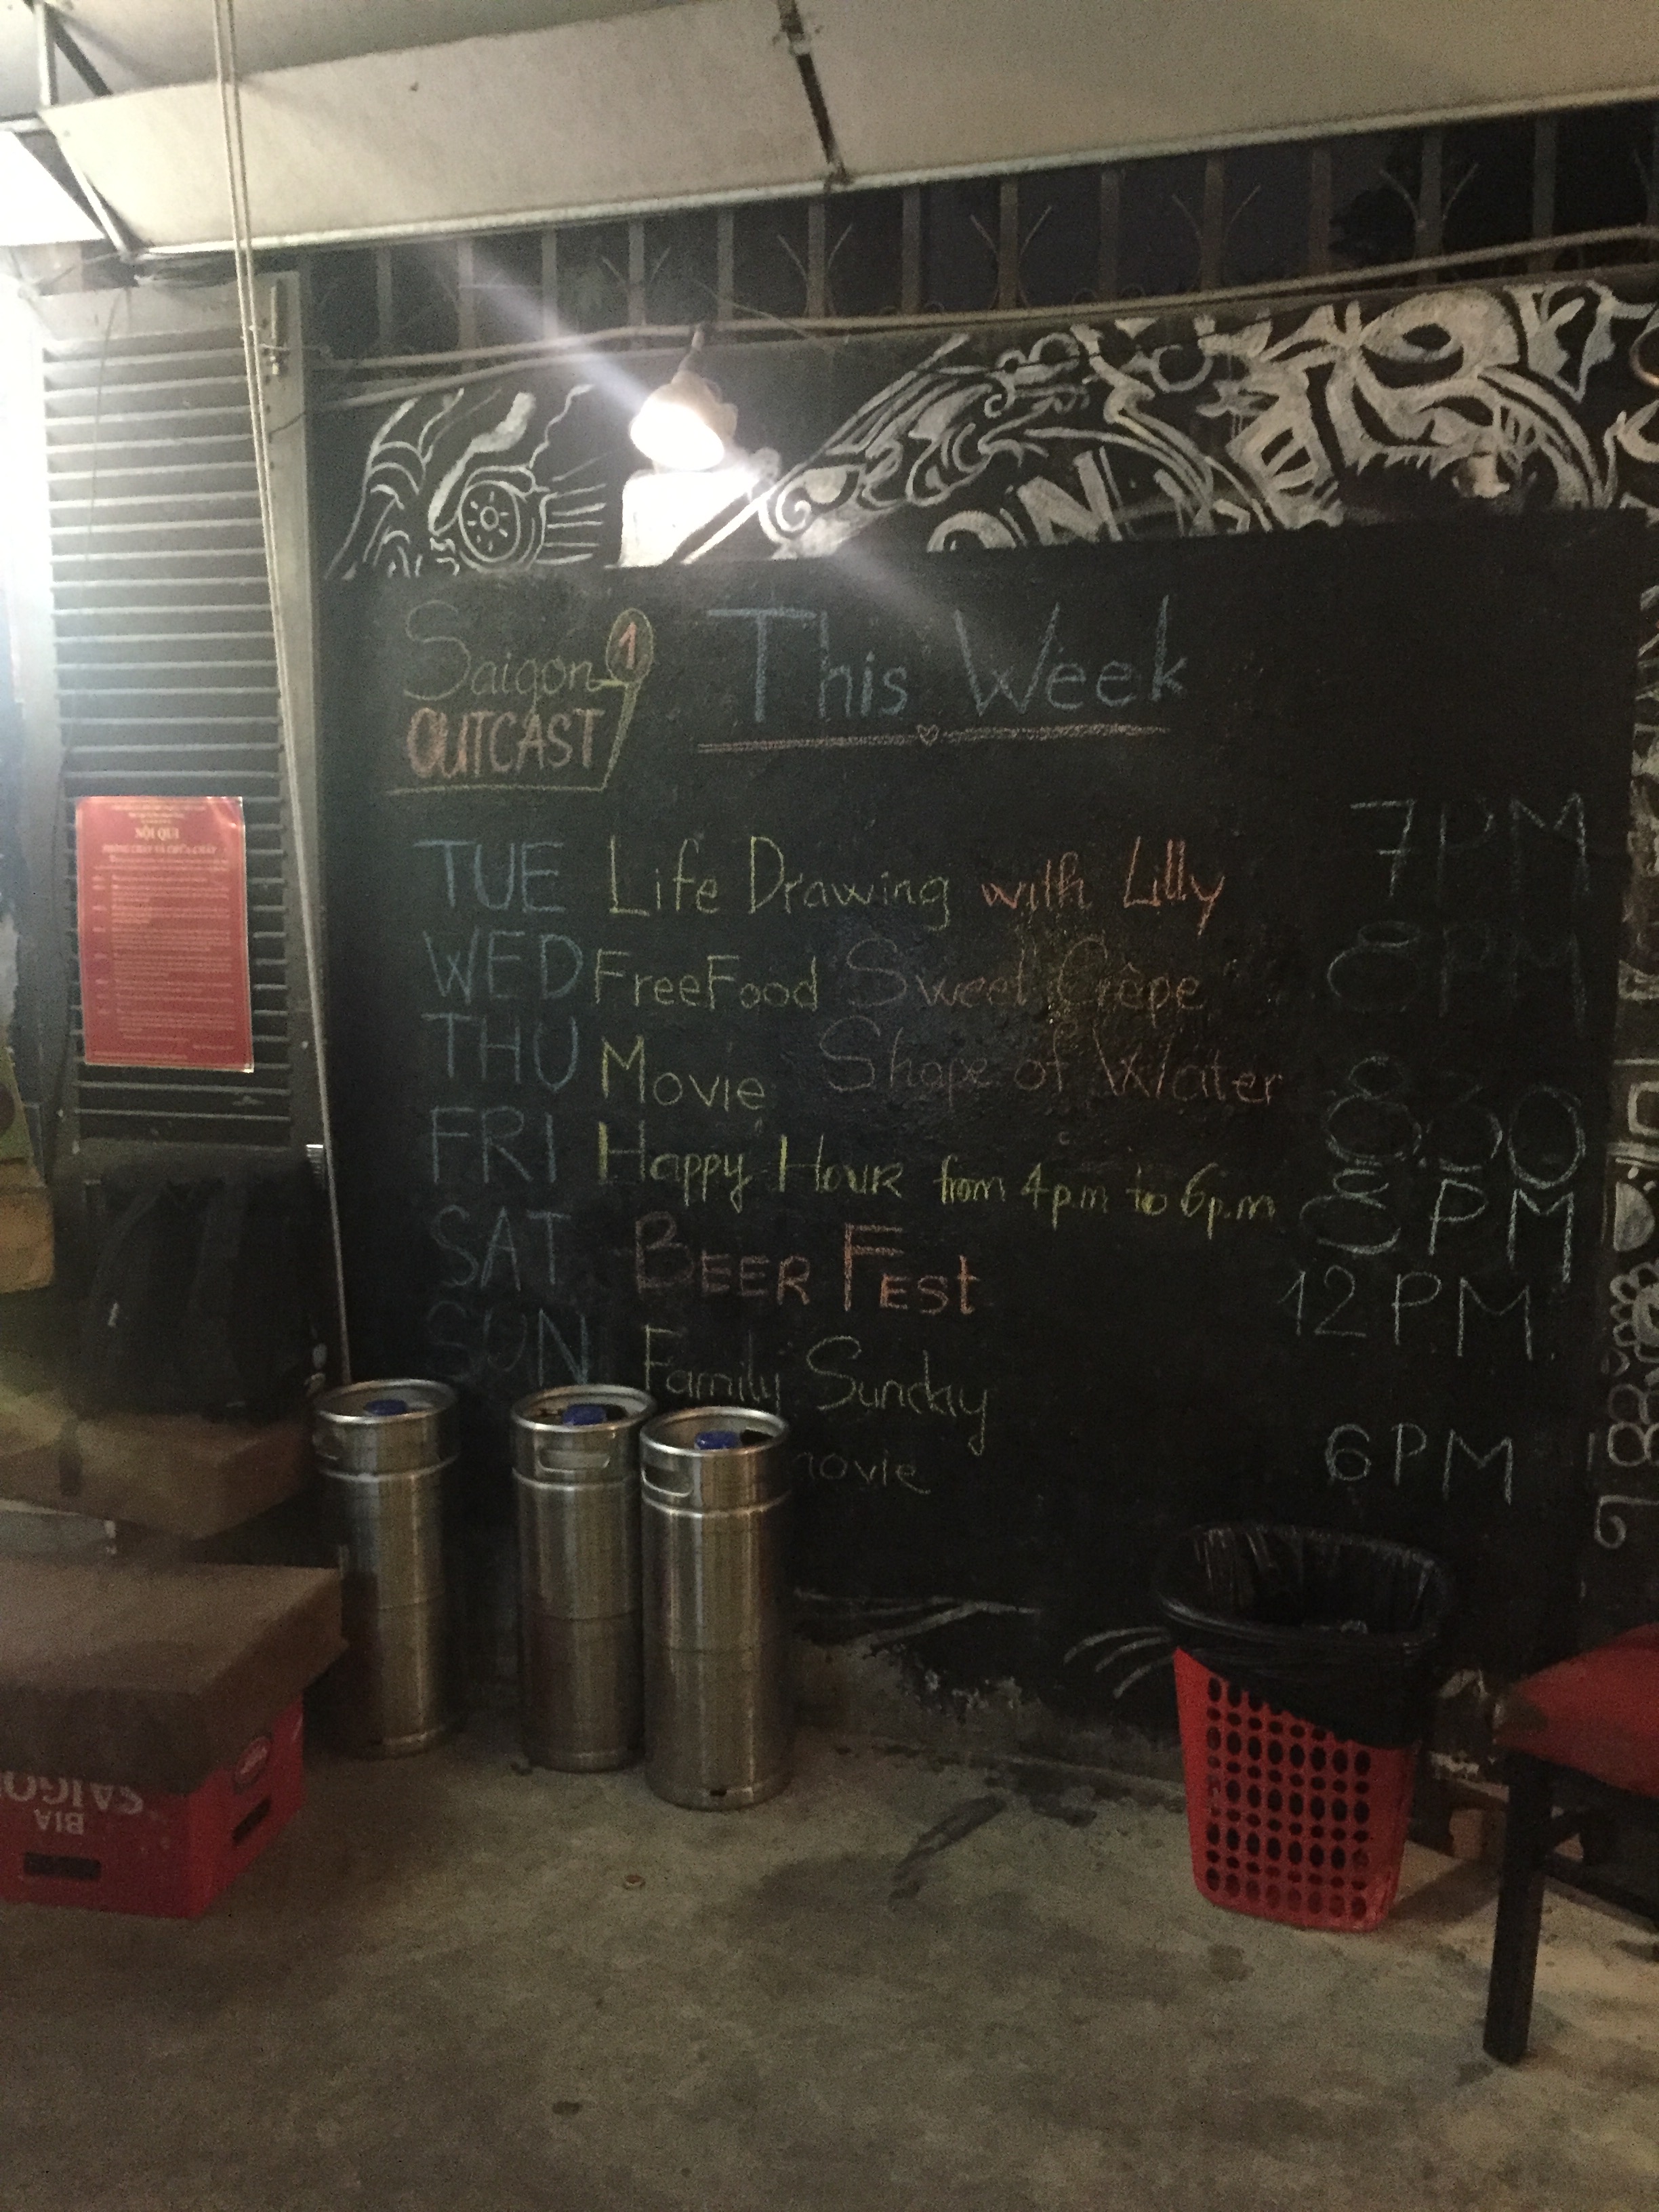 ON
Saigon 1 This Week
OUTCAST
TUE Life Drawing with Lilly 7PM
WED FreeFood Sweet Crêpe 8PM
THU Movie Shape of Water 8:30
FRI Happy Hour from 4p.m to 6p.m PM
SAT Beer Fest 12PM
SUN Family Sunday
movie 6PM
NỘI QUI
PHÒNG CHÁY VÀ CHỮA CHÁY
BIA
SAIGON